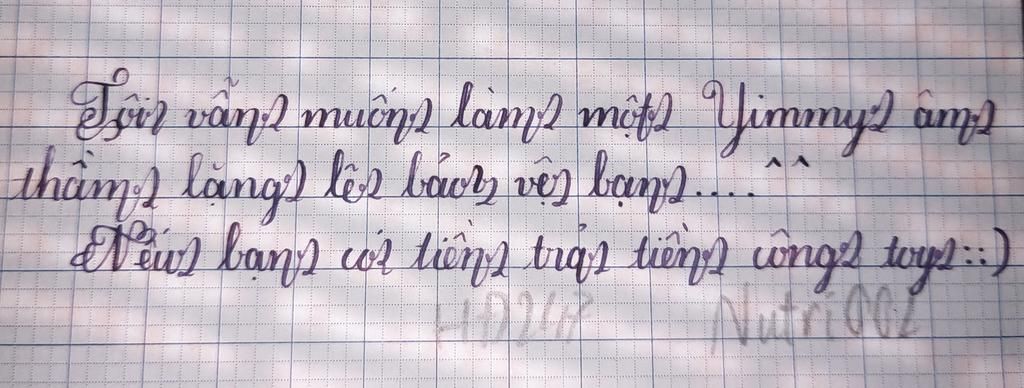 Tôi vẫn muốn làm một Yimmy âm
thầm lặng lẽ bảo vệ bạn.... ^^
Nếu bạn có tiền trả tiền công toy::)
Nutri002